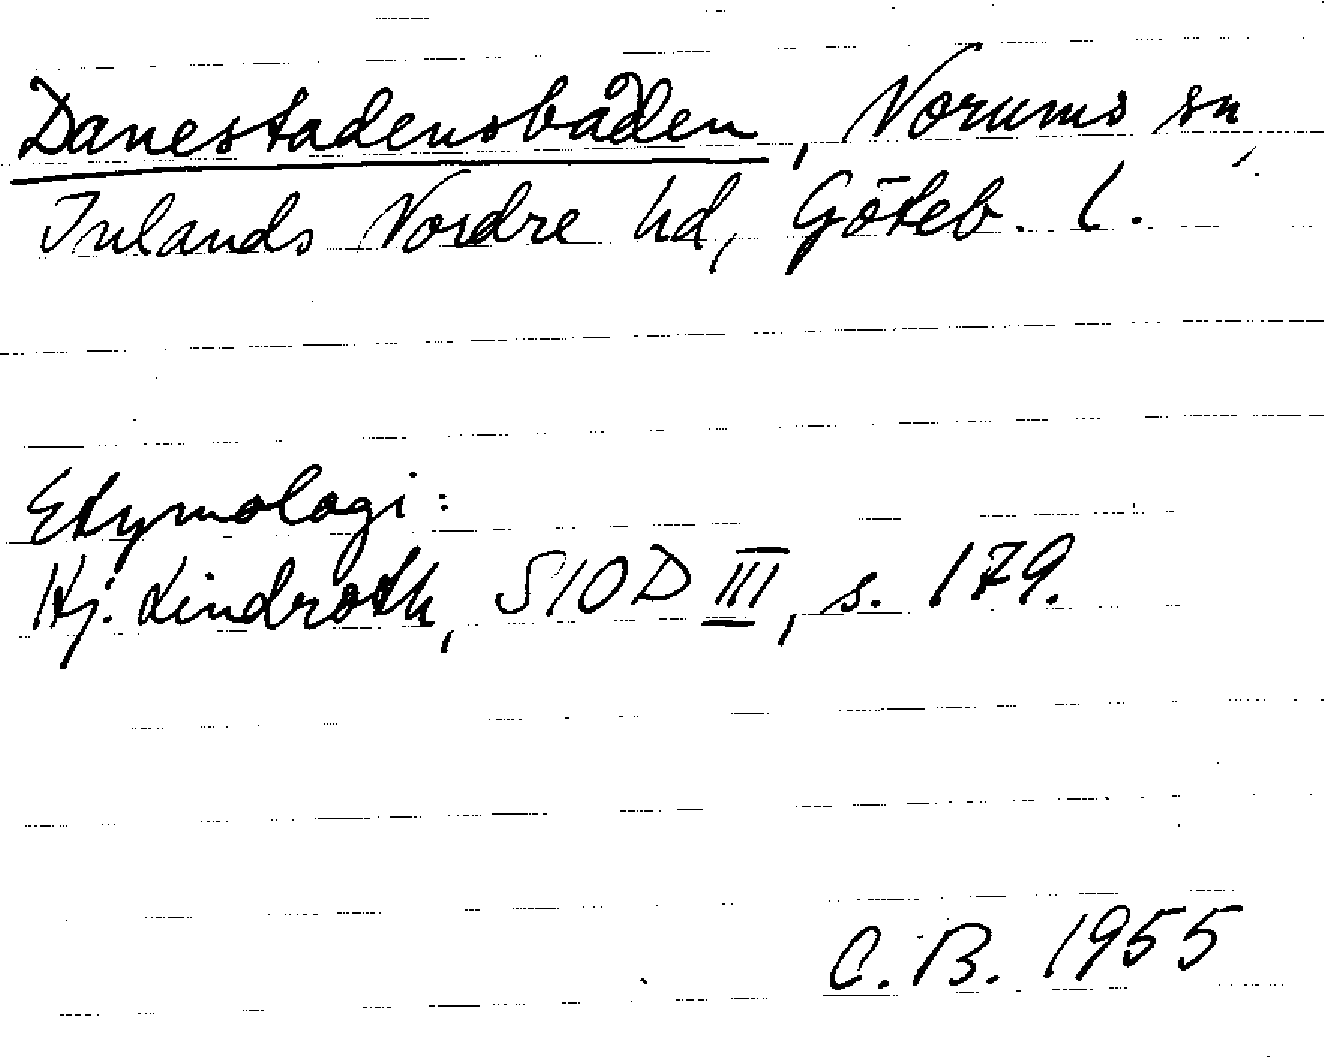 Danestadensbåden, Norums sn,
Inlands Nordre hd, Göteb. l.
Etymologi:
Hj. Lindroth, SIOD III, s. 179.
C.B. 1955